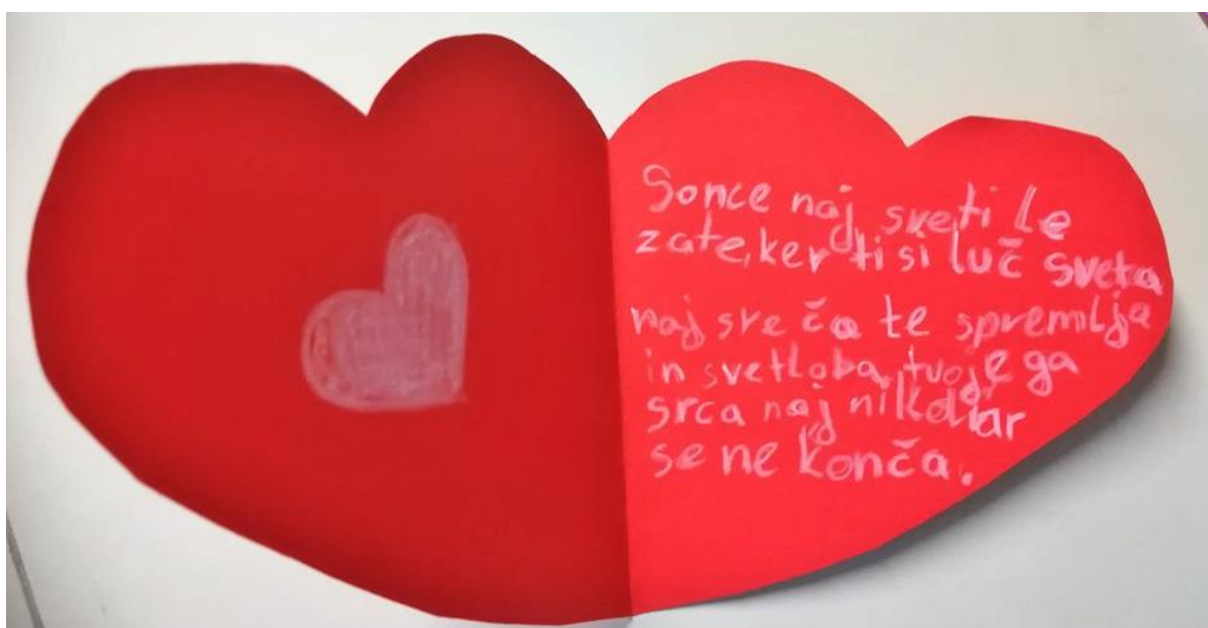 Sonce naj sveti le
zate, ker ti si luč sveta
naj sreča te spremlja
in svetloba tvojega
srca naj nikdar
se ne konča.